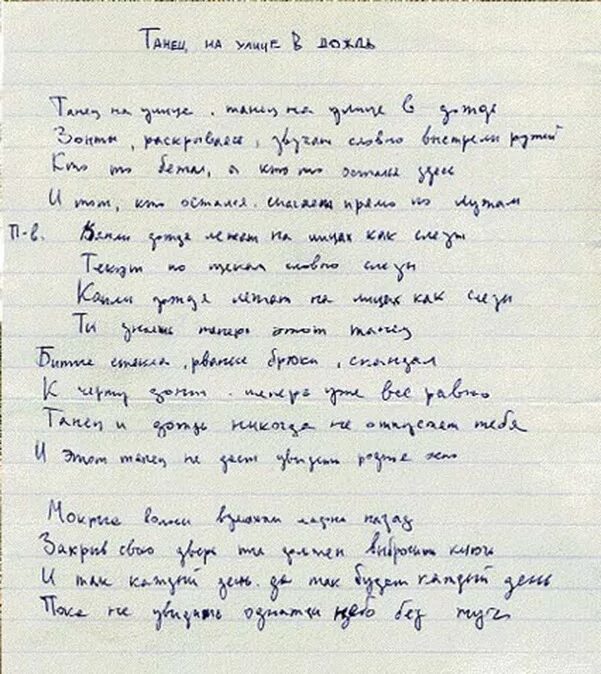 Танец на улице в дождь
Танец на улице, танец на улице в дожде
Зонты, раскрываясь, звучат словно выстрелы ружей
Кто то бежал, а кто то остался здесь
И тот, кто остался, шагает прямо по лужам
П-в. Капли дождя лежат на лицах как слезы
Текут по щекам словно слезы
Капли дождя лежат на лицах как слезы
Ты знаешь теперь этот танец
Битые стекла, рваные брюки, скандал
К черту зонт, теперь уже все равно
Танец и дождь никогда не отпускает тебя
И этот танец не даст увидеть родное
Мокрые волосы взмахом ладони назад
Закрыв свою дверь ты должен выбросить ключ
И так каждый день, да так будет каждый день
Пока не увидишь однажды небо без туч